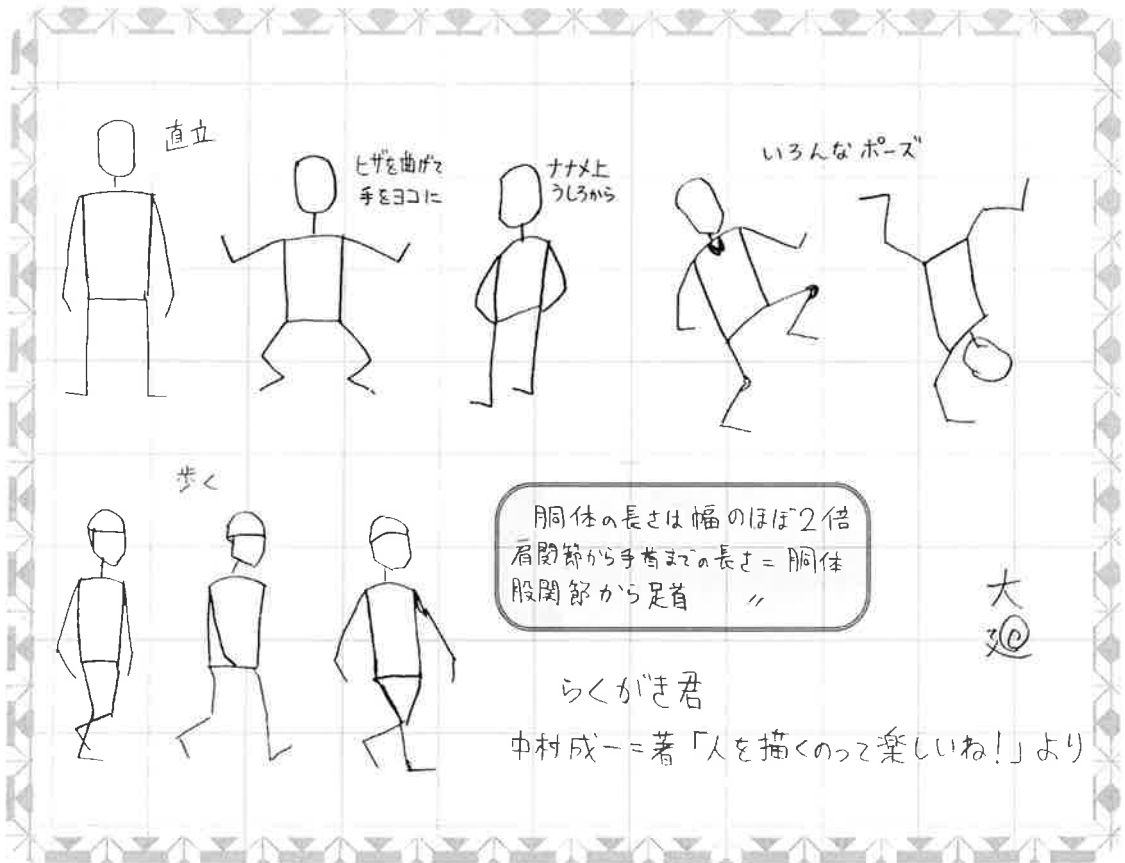 直立
ヒザを曲げて
手をヨコに
ナナメ上
うしろから
いろんなポーズ
歩く
胴体の長さは幅のほぼ2倍
肩関節から手首までの長さ=胴体
股関節から足首 〃
らくがき君
中村成一=著「人を描くのって楽しいね!」より
大